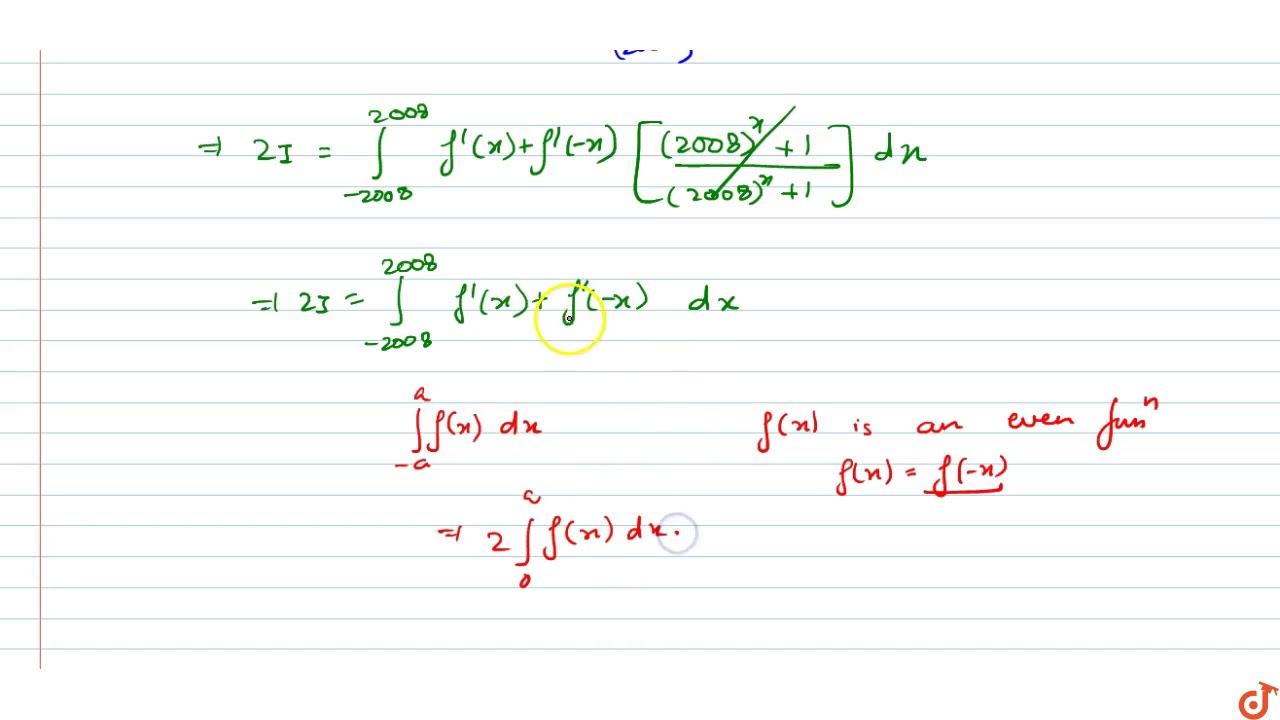 ⇒ 2I = ∫_{-2008}^{2008} f'(x)+f'(-x) [((2008)^x + 1)/((2008)^x + 1)] dx
⇒ 2I = ∫_{-2008}^{2008} f'(x)+ f'(-x) dx
∫_{-a}^{a} f(x) dx f(x) is an even fun^n
f(x) = f(-x)
⇒ 2 ∫_{0}^{a} f(x) dx.